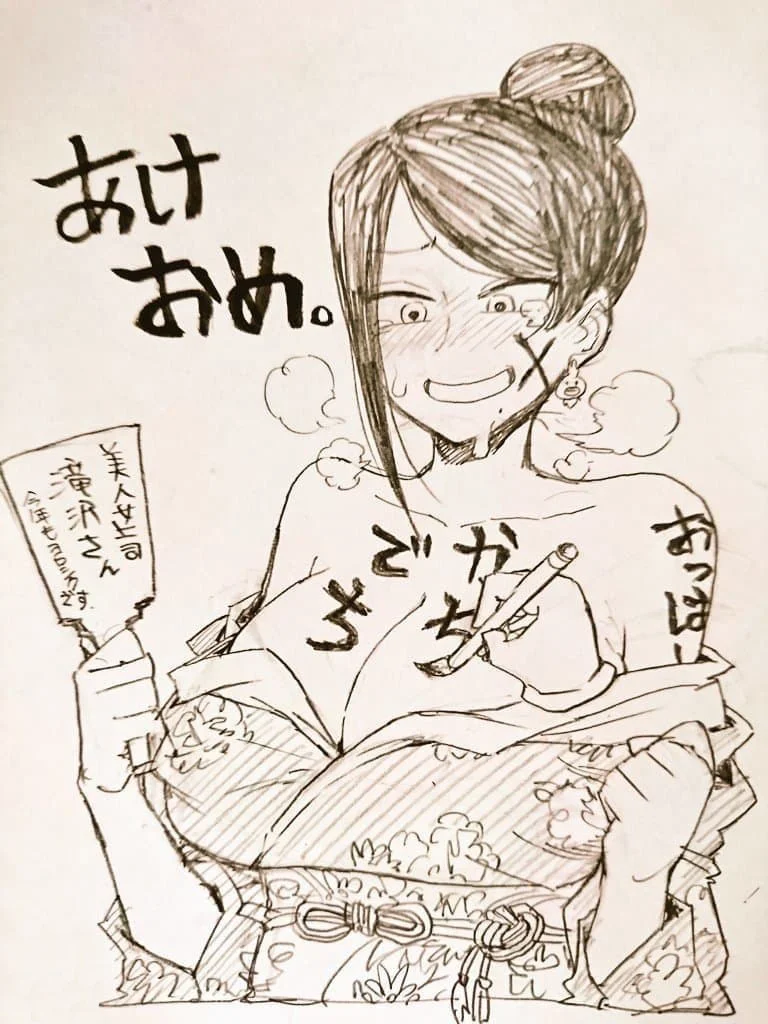 あけ
おめ。
美人女上司
滝沢さん
今年もヨロシクです。
でか
ちち
おっぱい